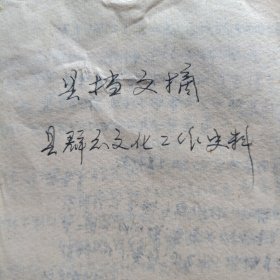 县档文摘
县群众文化工作史料